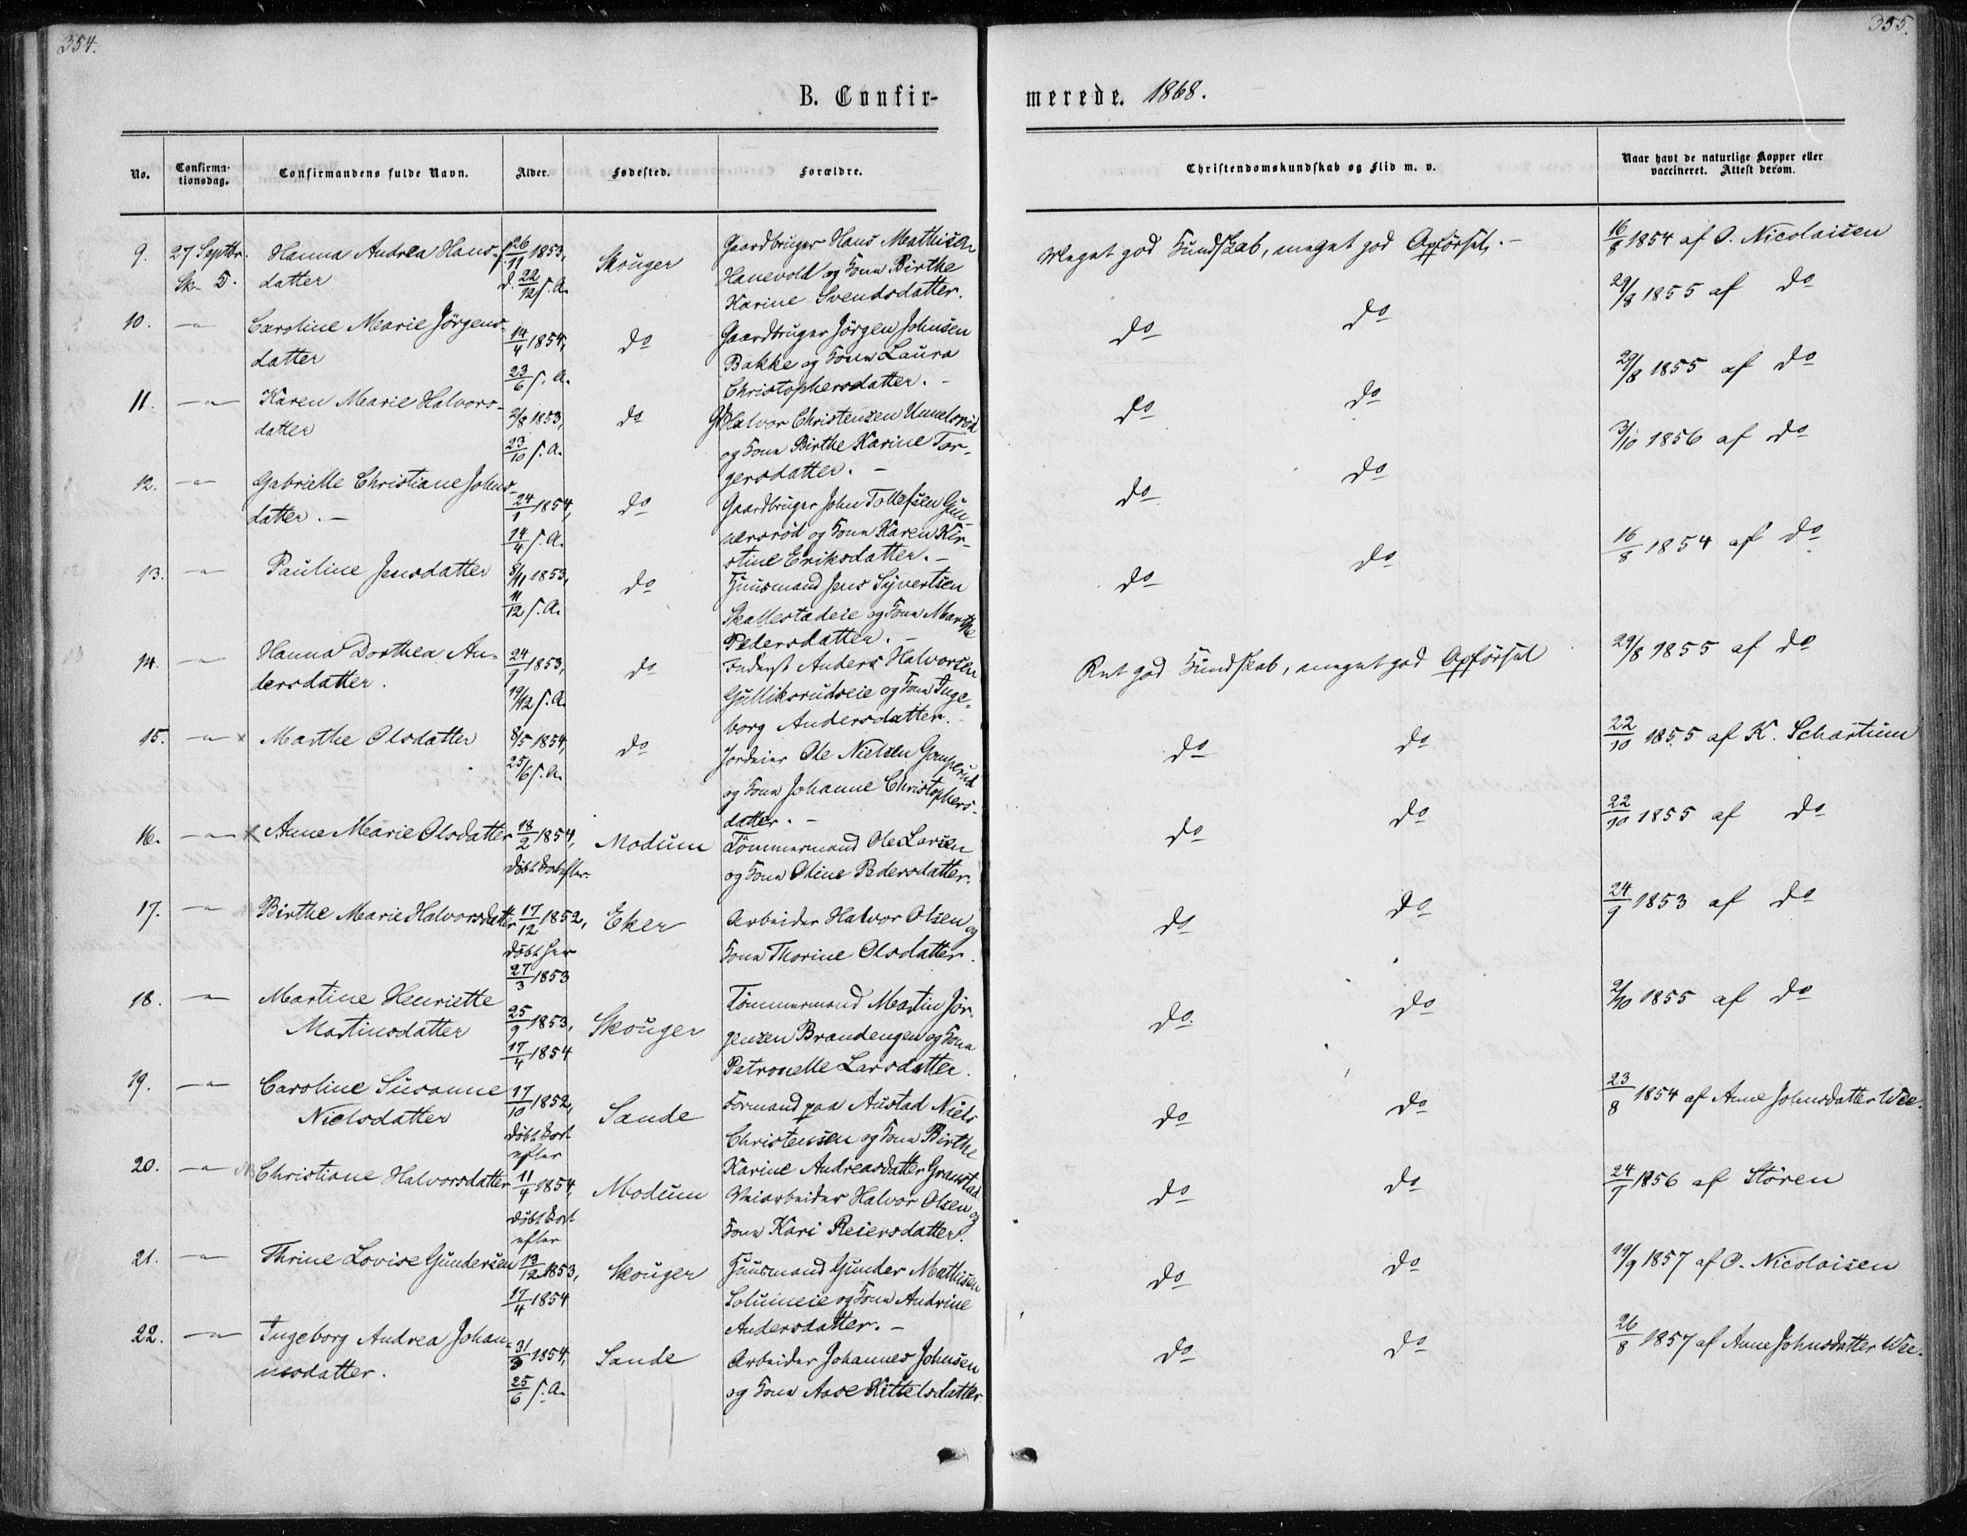 354.
355.
B. Confir-
merede. 1868.
No.
Confirma-
tionsdag.
Confirmandens fulde Navn.
Alder.
Fødested.
Forældre.
Christendomskundskab og Flid m. v.
Naar havt de naturlige Kopper eller
vaccineret. Attest derom.
9. 27 Septbr. Hanna Andrea Hans- f. 26/11 1853, Skouger Gaardbruger Hans Mathisen
datter d. 22/12 s. A. Hanevold og Kone Birthe
Karine Svendsdatter.
Meget god Kundskab, meget god Opførsel. - 16/8 1854 af O. Nicolaisen
10. -"- Caroline Marie Jørgens- 14/4 1854, do Gaardbruger Jørgen Johnsen
datter 23/6 s. A. Bakke og Kone Laura
Christophersdatter. -
do do 29/8 1855 af do
11. -"- Karen Marie Halvors- 2/8 1853, do Gb Halvor Christensen
datter 23/10 s. A. og Kone Birthe Karine Tor-
gersdatter. -
do do 29/8 1855 af do
12. -"- Gabrielle Christiane Johns- 24/1 1854, do Gaardbruger John Tollefsen Gun-
datter. - 14/4 s. A. nersrød og Kone Karen Kir-
stine Eriksdatter. -
do do 3/10 1856 af do
13. -"- Pauline Jensdatter 8/11 1853, do Huusmand Jens Syvertsen
11/12 s. A. Skallestadeie og Kone Marthe
Pedersdatter. -
do do 16/8 1854 af do
14. -"- Hanna Dorthea An- 24/9 1853, do Inderst Anders Halvorsen
dersdatter. 19/12 s. A. Gulliksrudseie og Kone Inge-
borg Andersdatter.
Ret god Kundskab, meget god Opførsel 29/8 1855 af do
15. -"- x Marthe Olsdatter 8/5 1854, do Jordeier Ole Nielsen Gamperud
25/6 s. A. og Kone Johanne Christophers-
datter. -
do do 22/10 1855 af K. Schartum
16. -"- x Anne Marie Olsdatter 18/2 1854, Modum Tømmermand Ole Larsen
døbt kort efter. og Kone Oline Pedersdatter.
do do 22/10 1855 af do
17. -"- Birthe Marie Halvorsdatter 17/12 1852, Eker Arbeider Halvor Olsen og
døbt her Kone Thorine Olsdatter.
27/3 1853
do do 24/9 1853 af do
18. -"- Martine Henriette 25/9 1853, Skouger Tømmermand Martin Jør-
Martinsdatter 17/4 1854 gensen Brandengen og Kone
Petronelle Larsdatter.
do do 2/10 1855 af do
19. -"- Caroline Susanne 17/10 1852, Sande Formand paa Austad Niels
Nielsdatter døbt kort Christensen og Kone Birthe
efter Karine Andreasdatter Granstad
do do 23/8 1854 af Anne Johnsdatter Wee.
20. -"- Christiane Halvorsdatter 11/4 1854, Modum Veiarbeider Halvor Olsen og
døbt kort Kone Kari Reiersdatter.
efter
do do 24/9 1856 af Støren
21. -"- Thrine Lovise Gundersen 13/12 1853, Skouger Huusmand Gunder Mathisen
17/4 1854 Solumeie og Kone Andrine
Andersdatter. -
do do 19/9 1857 af O. Nicolaisen
22. -"- Ingeborg Andrea Johan- 31/3 1854, Sande Arbeider Johannes Johnsen
nesdatter. 25/6 s. A. og Kone Aase Kittelsdatter.
do do 26/8 1857 af Anne Johnsdatter Wee.